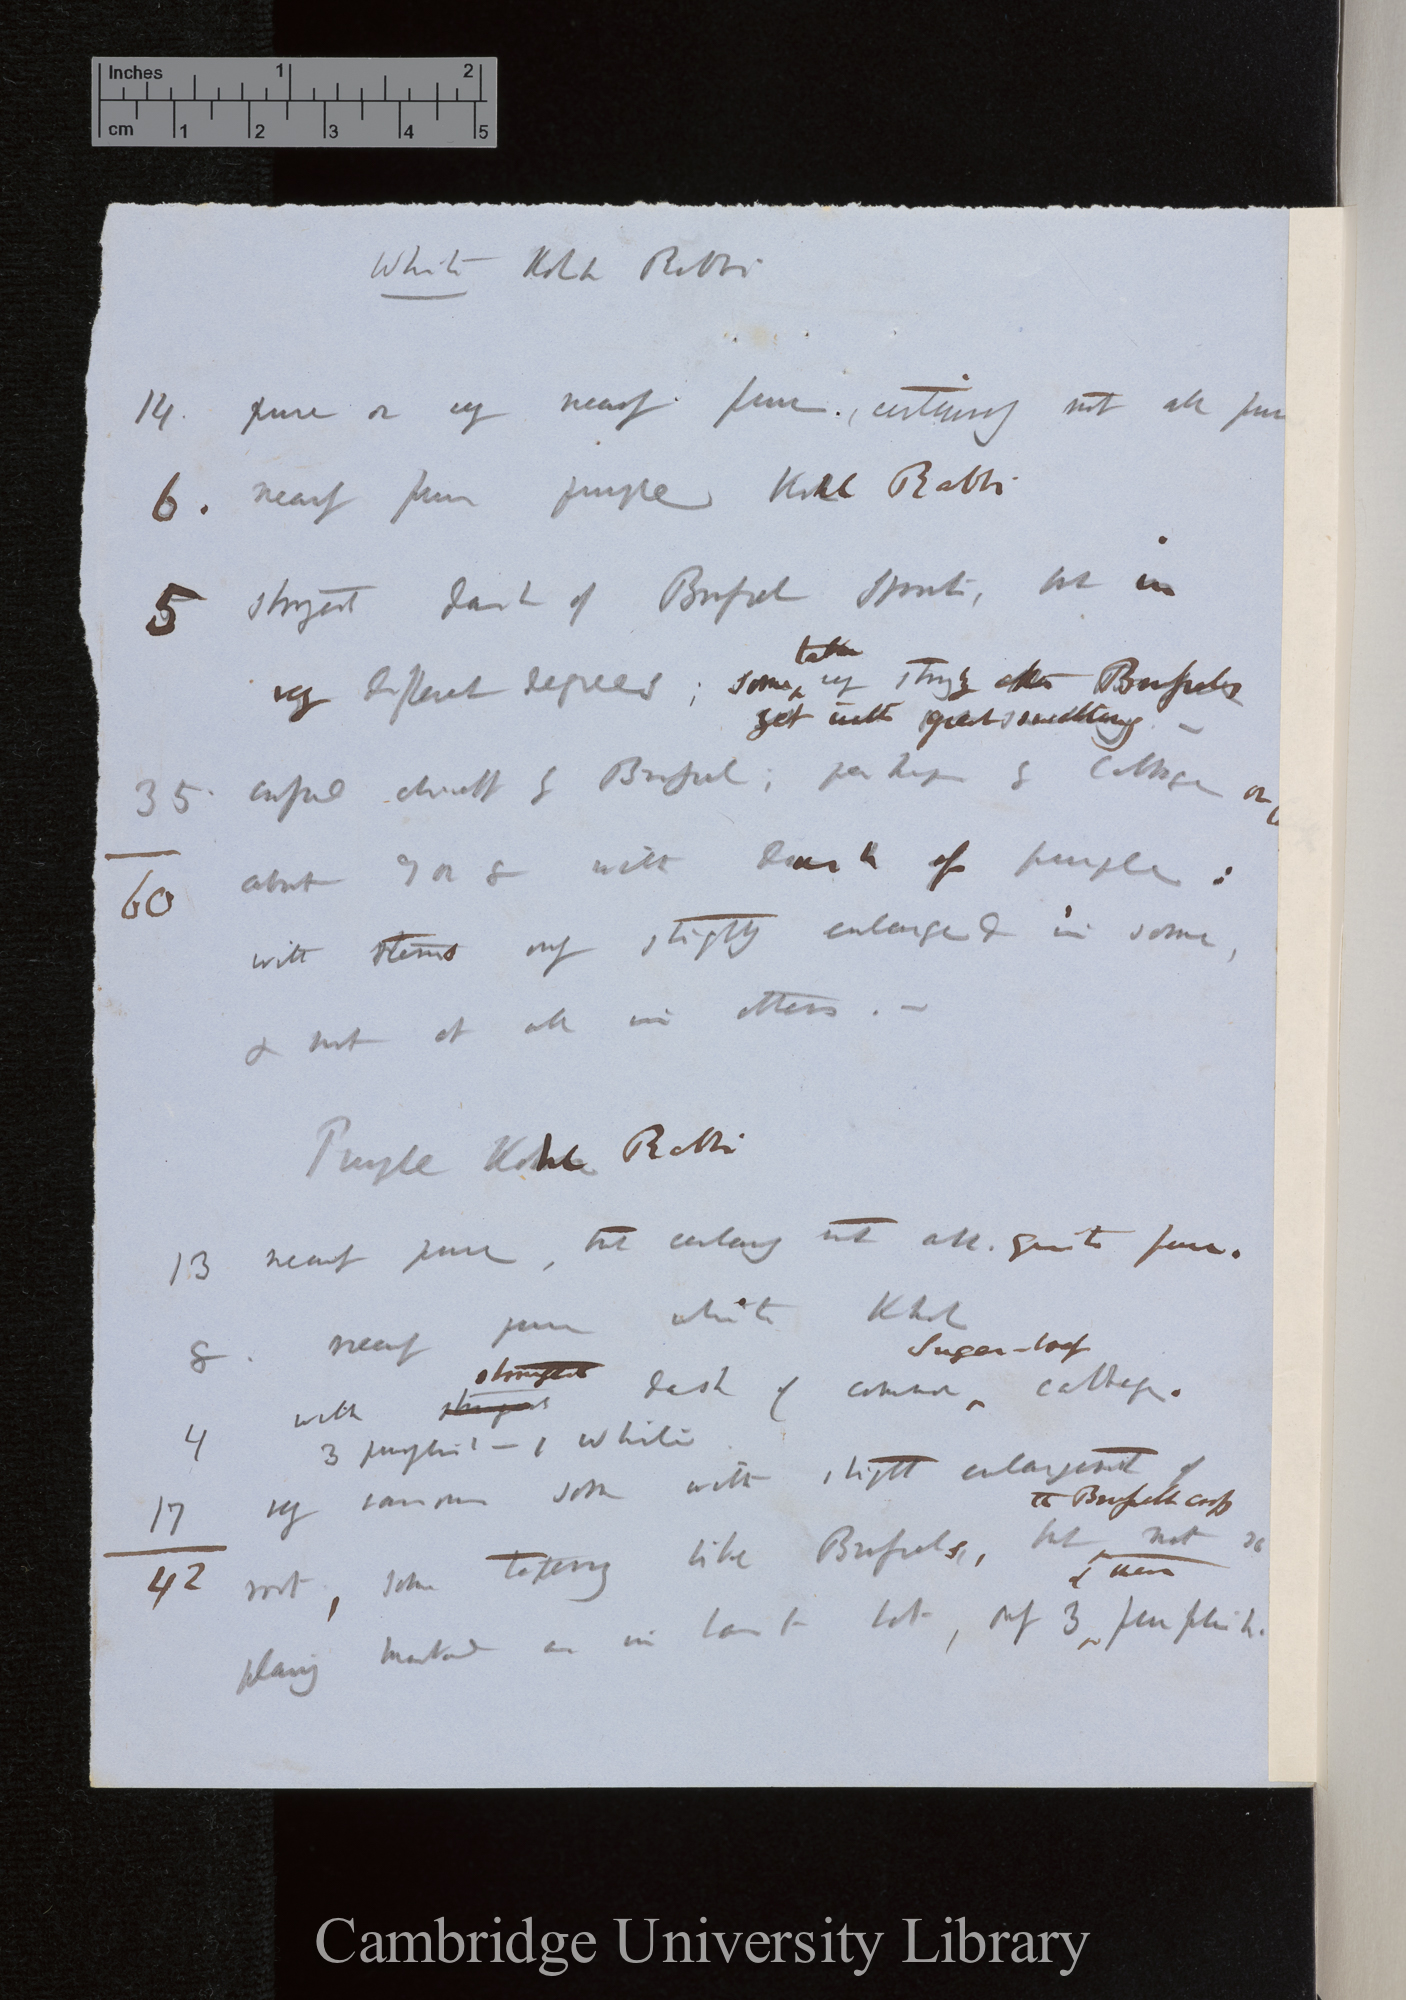 Inches 1 2
cm 1 2 3 4 5
White Kohl Rabbi
14. pure or very nearly pure., certainly not all pure
6. nearly pure purple Kohl Rabbi
5 strongest dash of Brussel Sprouts, but in
very different degrees; some taken very strongly after Brussels
yet with great swelling. —
35. chiefly of Brussel; perhaps of Cabbage or
60 about 7 or 8 with dash of purple:
with stems only slightly enlarged in some,
& not at all in others. —
Purple Kohl Rabbi
13 nearly pure, but certainly not all. quite pure.
8. nearly pure white Khol
4 with strongest dash of common Sugar-loaf cabbage.
3 purplish — 1 white
17 very various some with slight enlargement of
42 root, some like Brussels, but the Brussells not so
plainly marked as in last lot, only 3 of them purplish.
Cambridge University Library